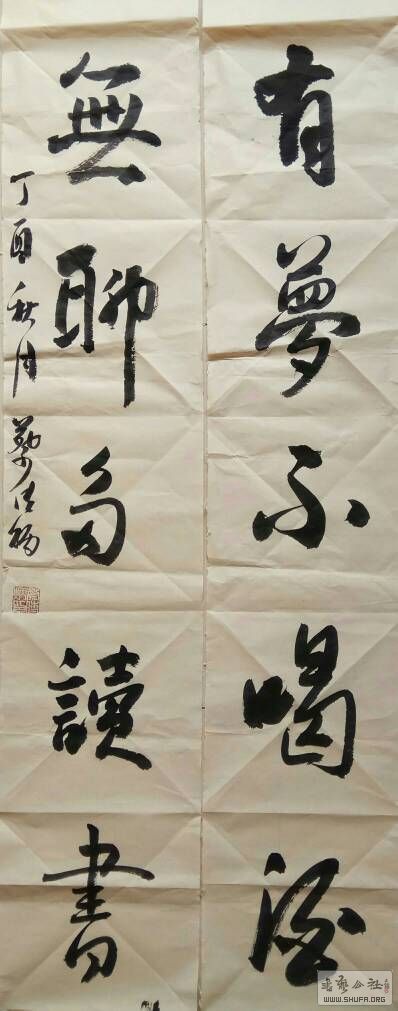 有夢不喝酒
無聊多讀書
丁酉秋月
书艺公社
WWW.SHUFA.ORG